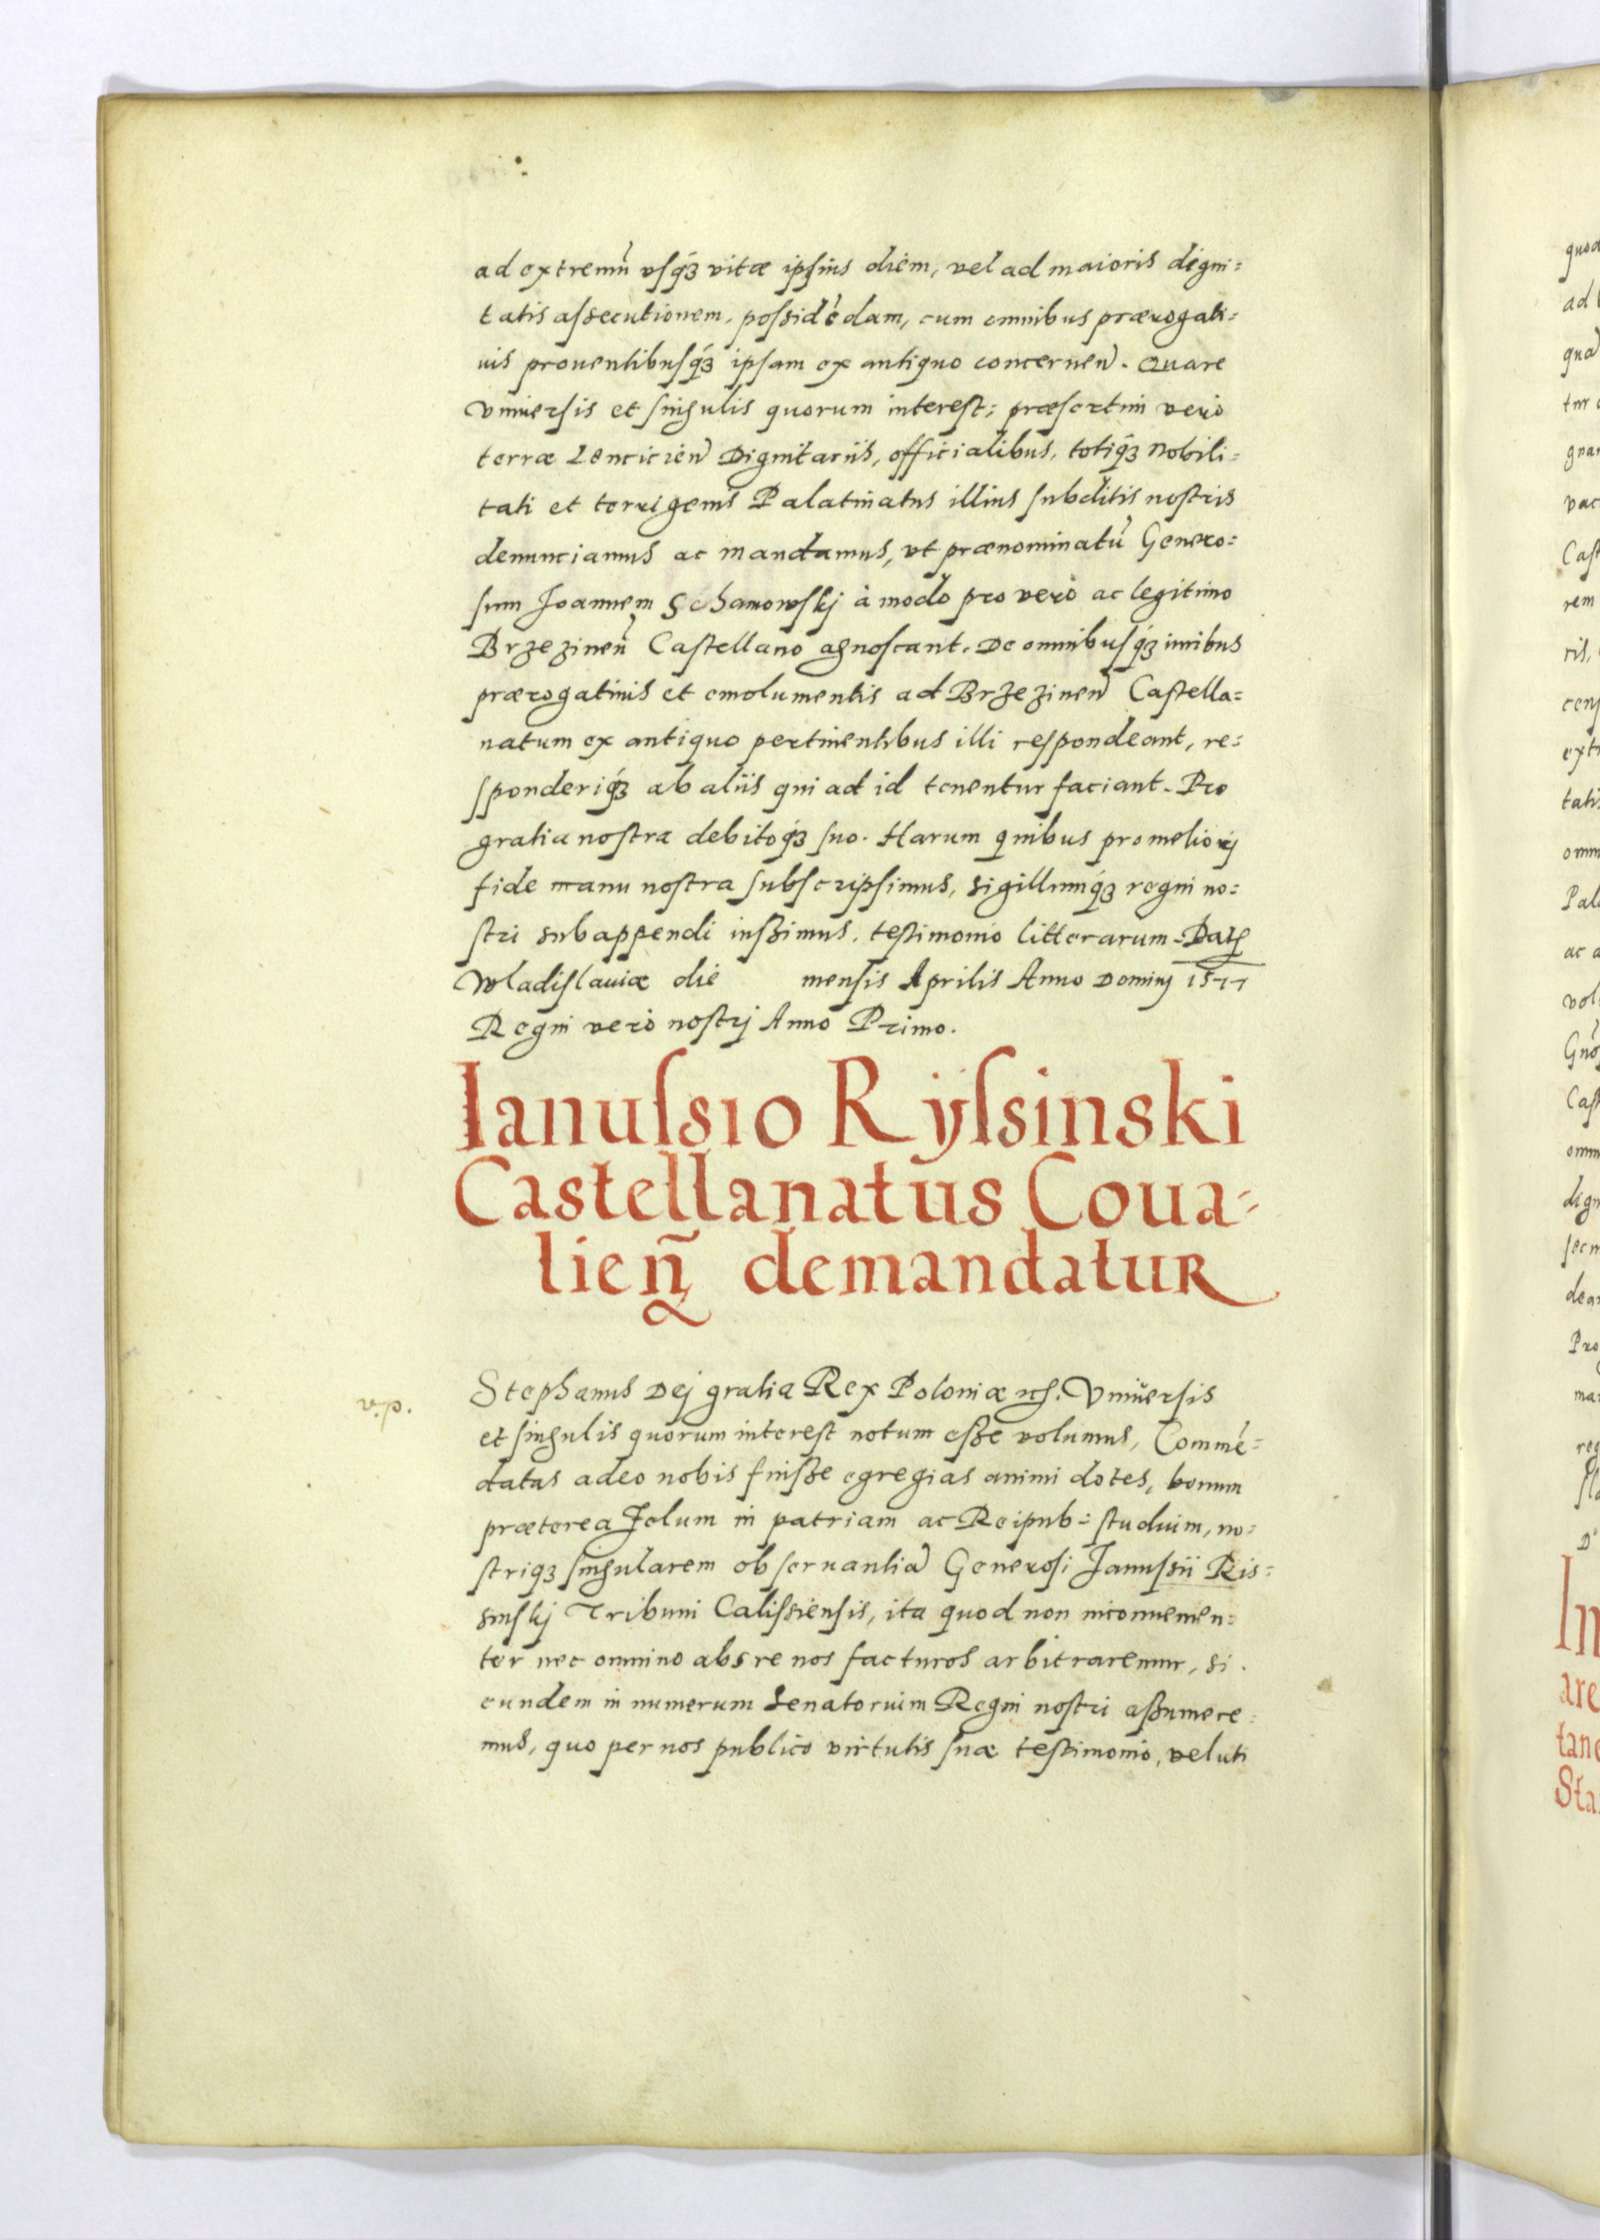 ad extremũ vsq́ꝫ vitæ ipsius diem, vel ad maioris digni=
tatis assecutionem, possidẽdam, cum omnibus prærogati=
uis prouentibusq́ꝫ ipsam ex antiquo concernen̄. Quare
Vniuersis et singulis quorum interest: præsertim verò
terræ Lencicien̄ Dignitariis, officialibus, totiq́ꝫ Nobili=
tati et terrigenis Palatinatus illius subditis nostris
denunciamus ac mandamus, vt prænominatũ Genero=
sum Joannem Schanowskj à modo pro verò ac legitimo
Brzezinen̄ Castellano agnoscant. De omnibusq́ꝫ iuribus
prærogatiuis et emolumentis ad Brzezinen̄ Castella=
natum ex antiquo pertinentibus illi respondeant, re=
sponderiq́ꝫ ab aliis qui ad id tenentur faciant. Pro
gratia nostra debitoq́ꝫ suo. Harum quibus pro meliorj
fide manu nostra subscripsimus, sigillumq́ꝫ regni no=
stri subappendi iussimus, testimonio litterarum. Datꝫ
Wladislauiæ die mensis Aprilis Anno Dominj 1577
Regni verò nostrj Anno Primo.
Ianussio Ryssinski
Castellanatus Coua=
lien̄ demandatur
Stephanus Dej gratia Rex Poloniæ ꝛcꝫ. Vniuersis
et singulis quorum interest notum esse volumus, Commẽ=
datas adeo nobis fuisse egregias animi dotes, bonum
præterea zelum in patriam ac Reipub= studium, no=
striqꝫ singularem obseruantiā Generosi Janussii Ris=
sinskj Tribuni Calissiensis, ita quod non inconuenien=
ter nec omnino abs re nos facturos arbitraremur, si
eundem in numerum Senatorum Regni nostri assumere=
mus, quo per nos publico virtutis suæ testimonio, veluti